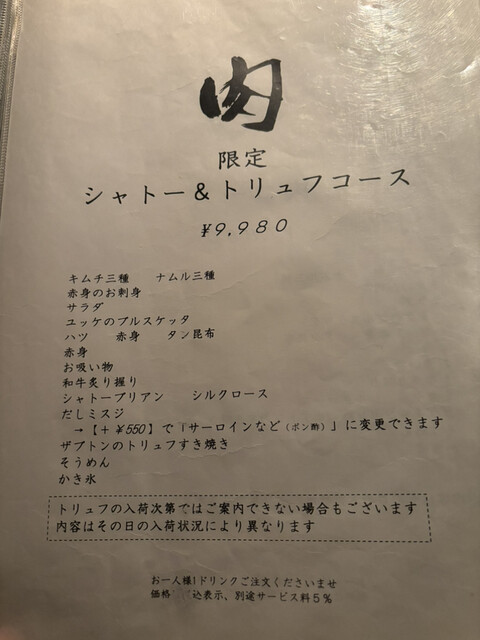 肉
限定
シャトー&トリュフコース
¥9,980
キムチ三種 ナムル三種
赤身のお刺身
サラダ
ユッケのブルスケッタ
ハツ 赤身 タン昆布
赤身
お吸い物
和牛炙り握り
シャトーブリアン シルクロース
だしミスジ
→【+¥550】で「サーロインなど(ポン酢)」に変更できます
ザブトンのトリュフすき焼き
そうめん
かき氷
トリュフの入荷次第ではご案内できない場合もございます
内容はその日の入荷状況により異なります
お一人様1ドリンクご注文くださいませ
価格 込表示、別途サービス料5%